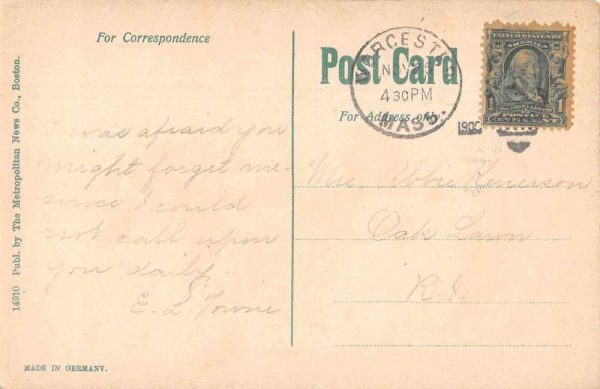 For Correspondence
Post Card
For Address only.
WORCESTER
NOV
4 30 PM
MASS.
190
UNITED STATES OF
AMERICA
1
POSTAGE
ONE CENT
1
I was afraid you
might forget me
since I could
not call upon
you daily.
E. L Towne
Mrs. Abbi Remerson
Oak Lawn
R.I.
14910 Publ. by The Metropolitan News Co., Boston.
MADE IN GERMANY.